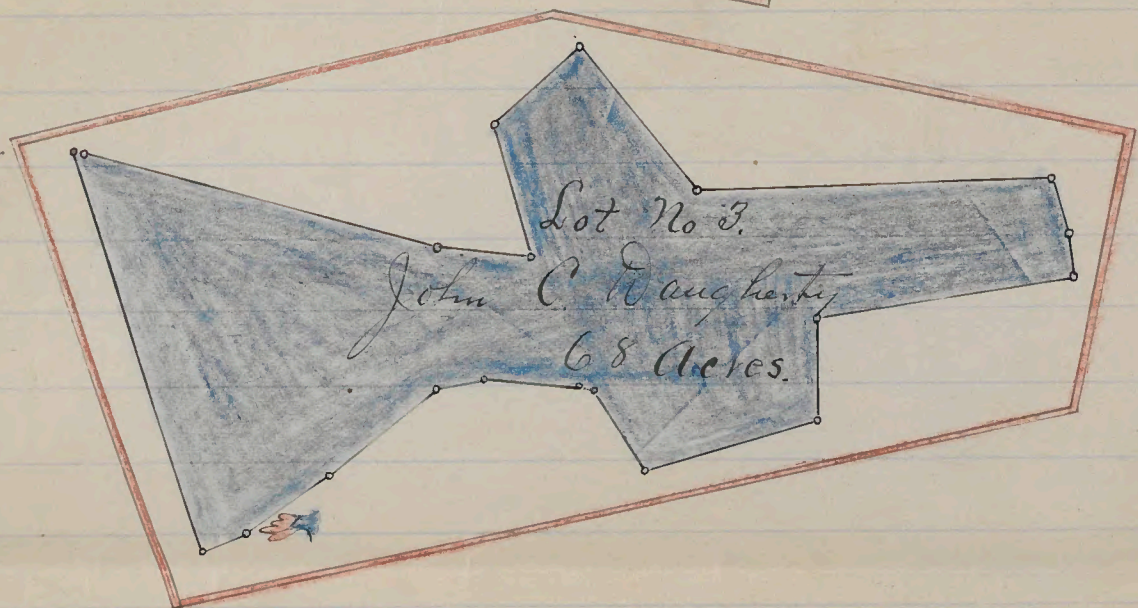 Lot No 3.
John C. Daugherty
68 Acres.